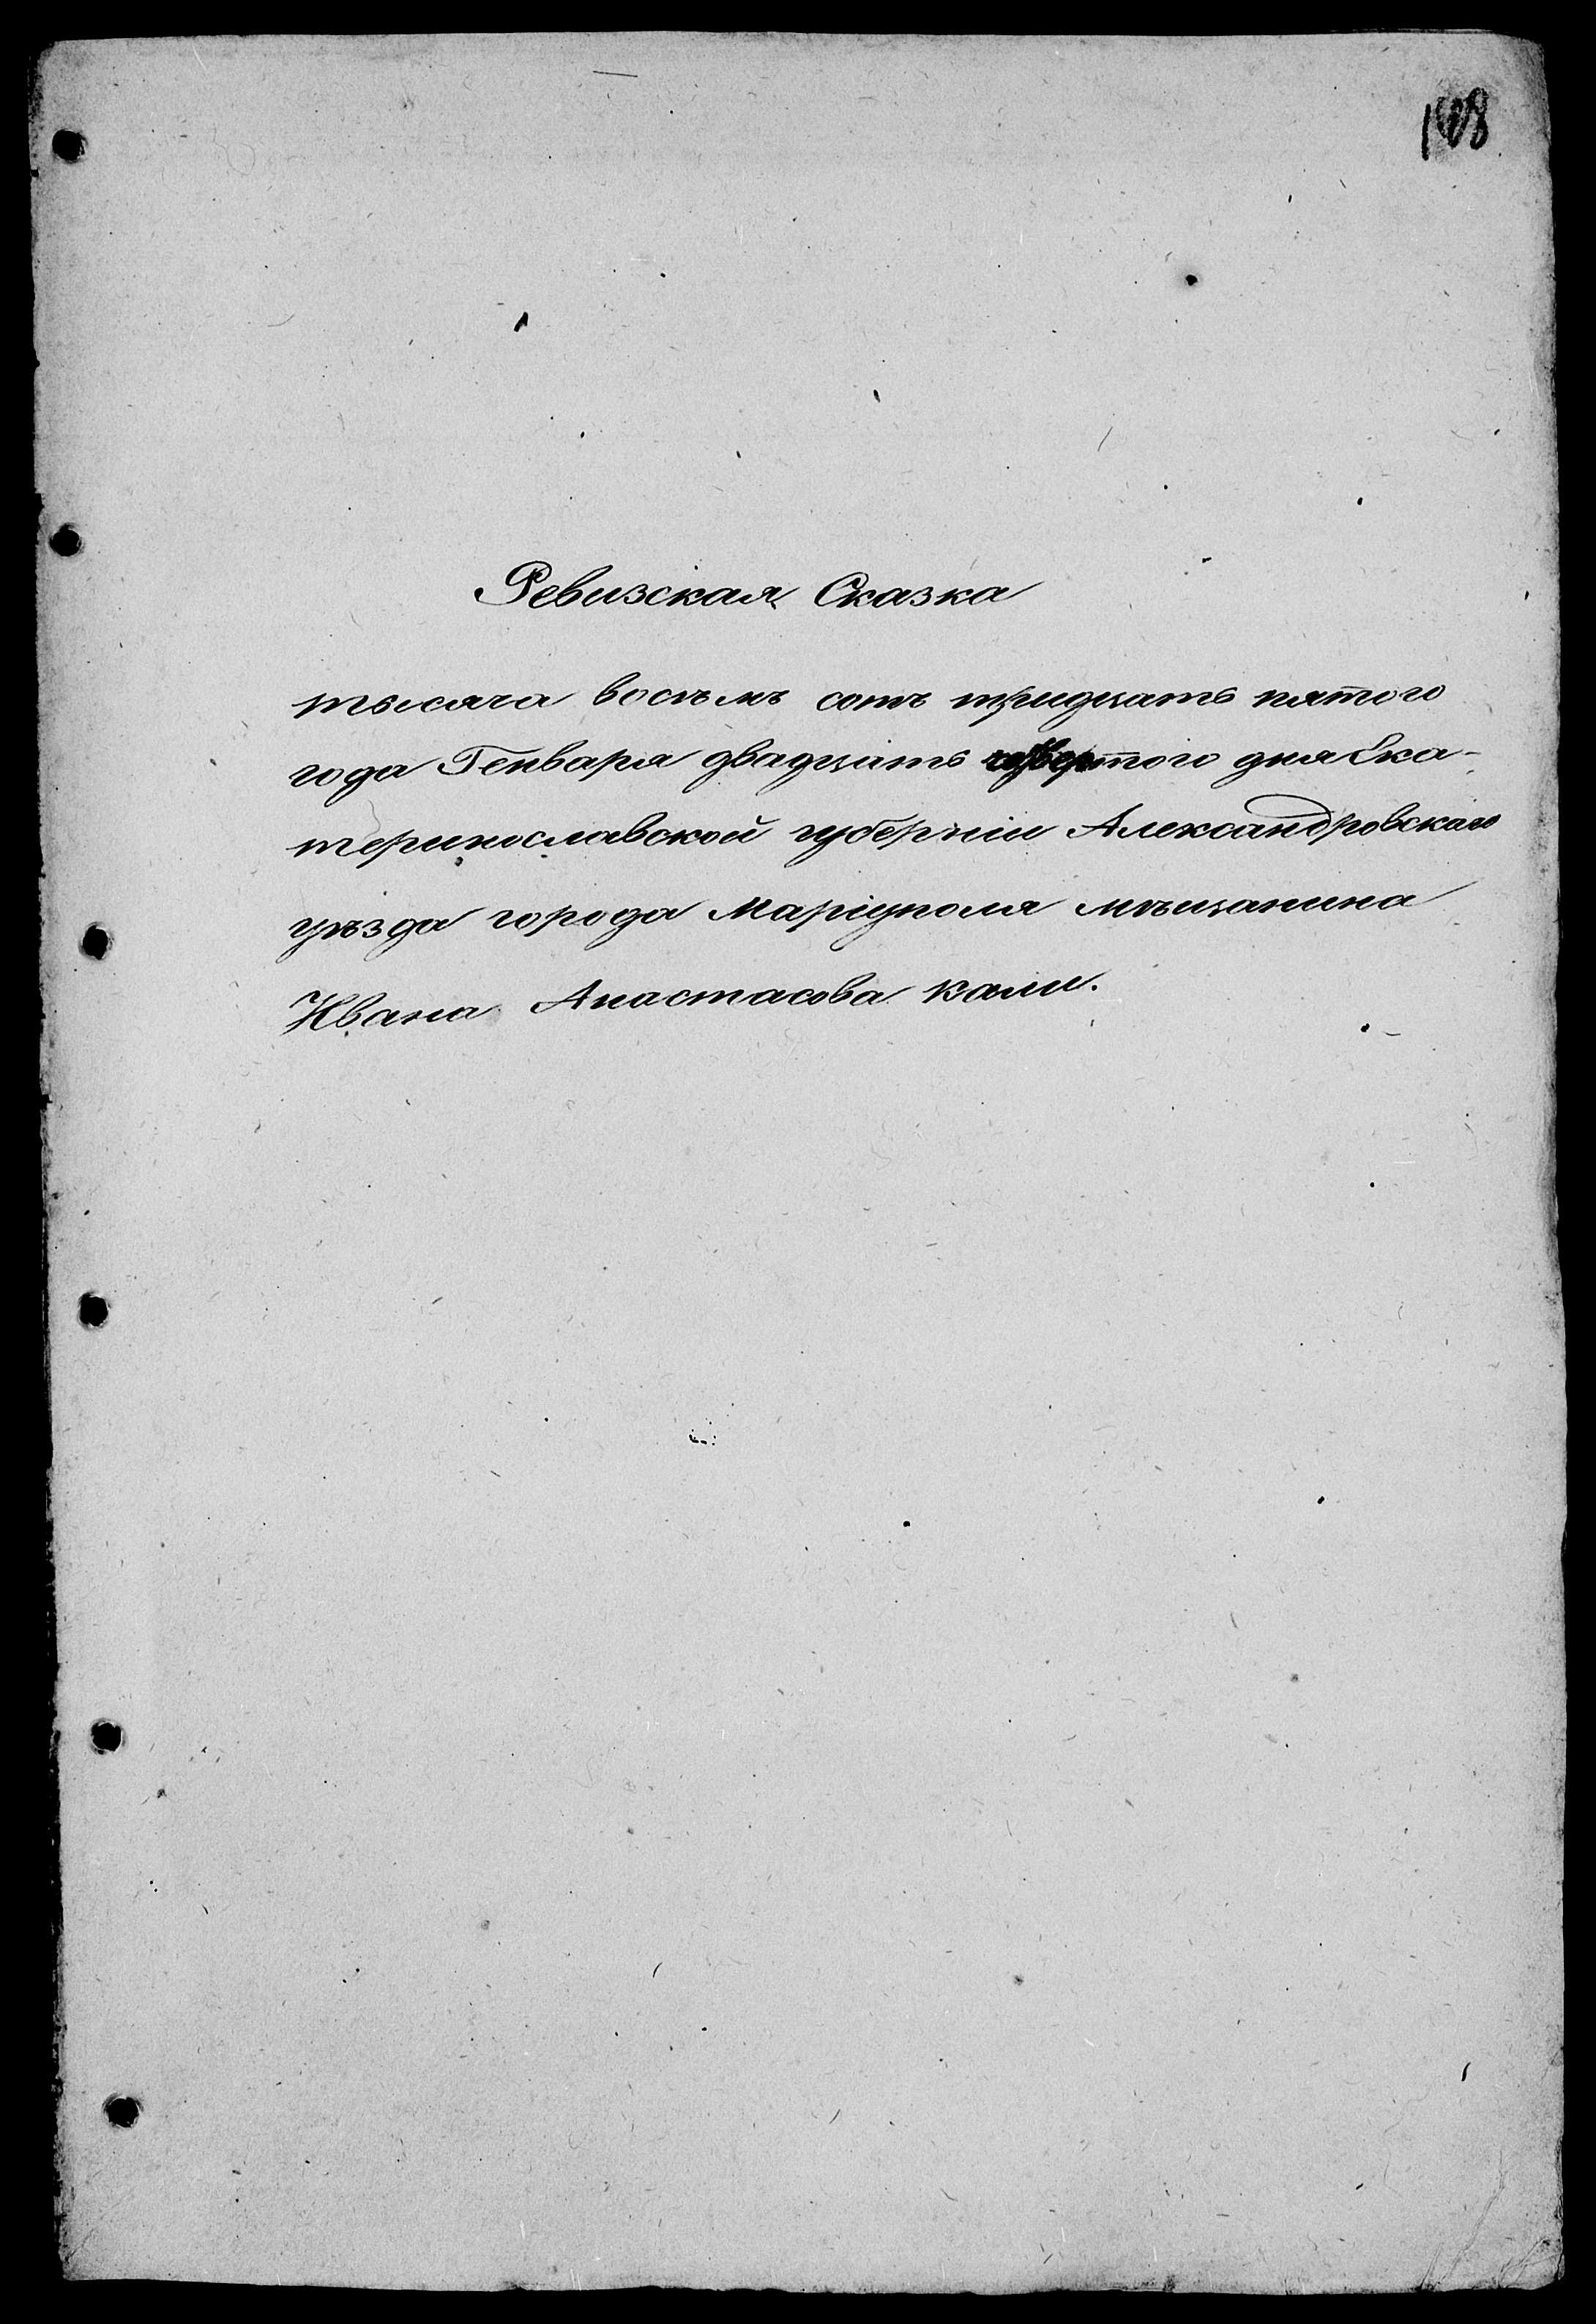 Ревизская Сказка
тысяча восѣмъ сотъ тридцать пятого
года Генваря двадцать четвертого дня Ека-
теринославской губерніи Александровскаго
уѣзда города Маріуполя мѣщанина
Ивана Анастасова Кали.